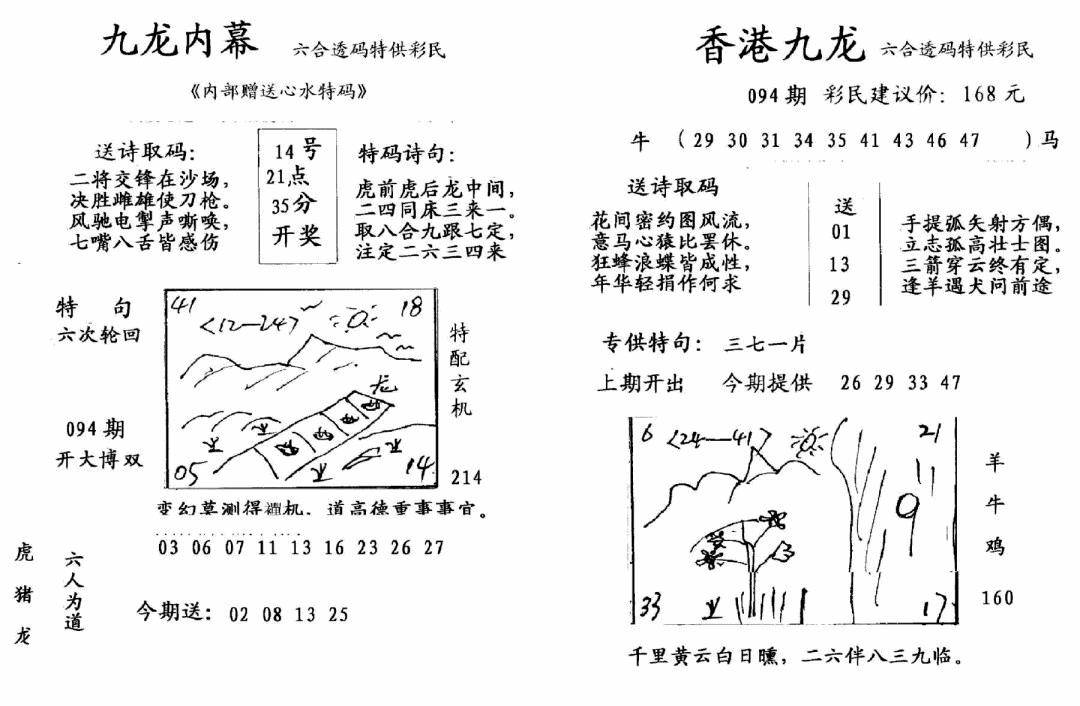 九龙内幕 六合透码特供彩民
《内部赠送心水特码》
送诗取码：
二将交锋在沙场，
决胜雌雄使刀枪。
风驰电掣声嘶唤，
七嘴八舌皆感伤
14号
21点
35分
开奖
特码诗句：
虎前虎后龙中间，
二四同床三来一。
取八合九跟七定，
注定二六三四来
特 句
六次轮回
094期
开大博双
41
18
<12—24>
龙
05
14
特配玄机
214
变幻莫测得禅机，道高德重事事宜。
03 06 07 11 13 16 23 26 27
虎猪龙
六人为道
今期送：02 08 13 25
香港九龙 六合透码特供彩民
094期 彩民建议价：168元
牛（29 30 31 34 35 41 43 46 47 ）马
送诗取码
花间密约图风流，
意马心猿比罢休。
狂蜂浪蝶皆成性，
年华轻捐作何求
送
01
13
29
手提弧矢射方偶，
立志孤高壮士图。
三箭穿云终有定，
逢羊遇犬问前途
专供特句： 三七一片
上期开出 今期提供 26 29 33 47
6
<24—41>
21
33
17
羊
牛
鸡
160
千里黄云白日曛，二六伴八三九临。